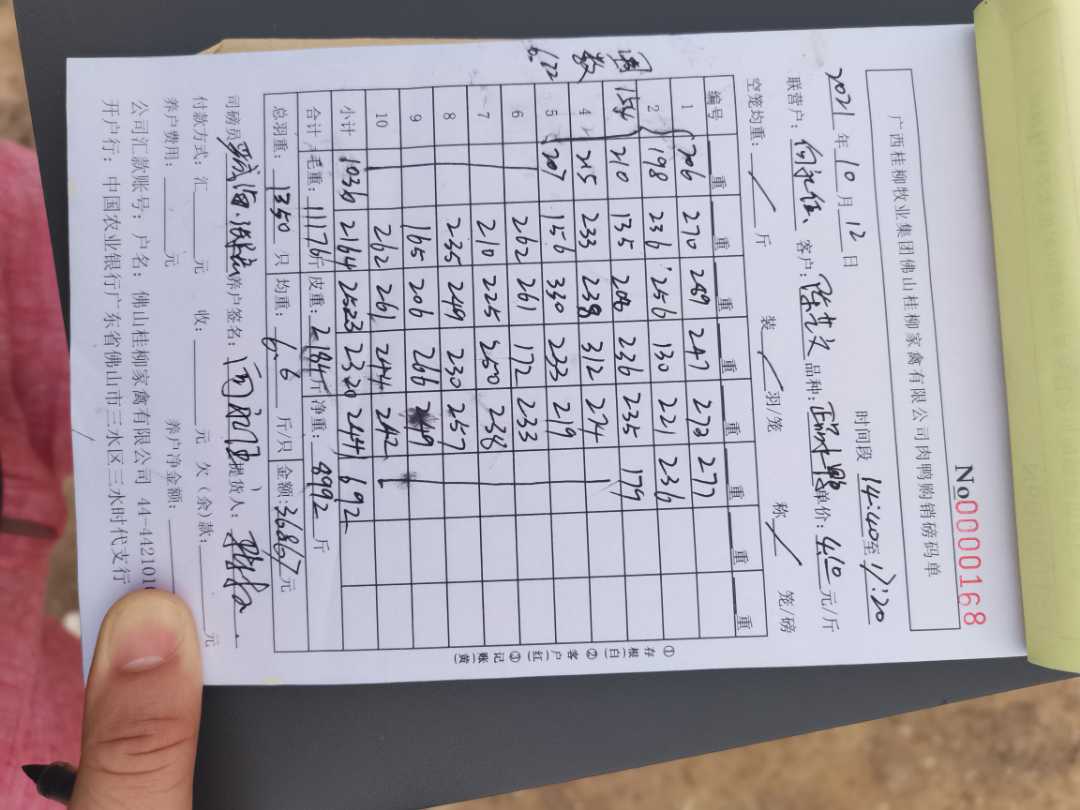 No 0000168
广西桂柳牧业集团佛山桂柳家禽有限公司肉鸭购销磅码单
2021年10月12日 时间段 14:40至17:20
联营户: 客户: 品种: 单价:4.10元/斤
空笼均重: / 斤 装 / 羽/笼 称 / 笼/磅
编号 重 重 重 重 重 重 重
1 206 270 289 247 272 277
2 198 236 256 130 221 236
154 210 135 208 236 235 179
4 215 233 238 312 274
5 207 156 330 233 219
6 262 261 172 233
7 210 225 250 238
8 235 249 230 257
9 165 206 266 249
10 262 261 244 242
小计 1036 2164 2523 2320 2441 692
合计 毛重:11176斤 皮重:2184斤 净重:8992斤
总羽重:1350只 均重:6.6斤/只 金额:36867元
司磅员 养户签名: 提货人:
付款方式:汇 元 收: 元 欠(余)款: 元
养户费用: 元 养户净金额:
公司汇款账号:户名:佛山桂柳家禽有限公司 44-442101
开户行:中国农业银行广东省佛山市三水区三水时代支行
①存根(白) ②客户(红) ③记账(黄)
数